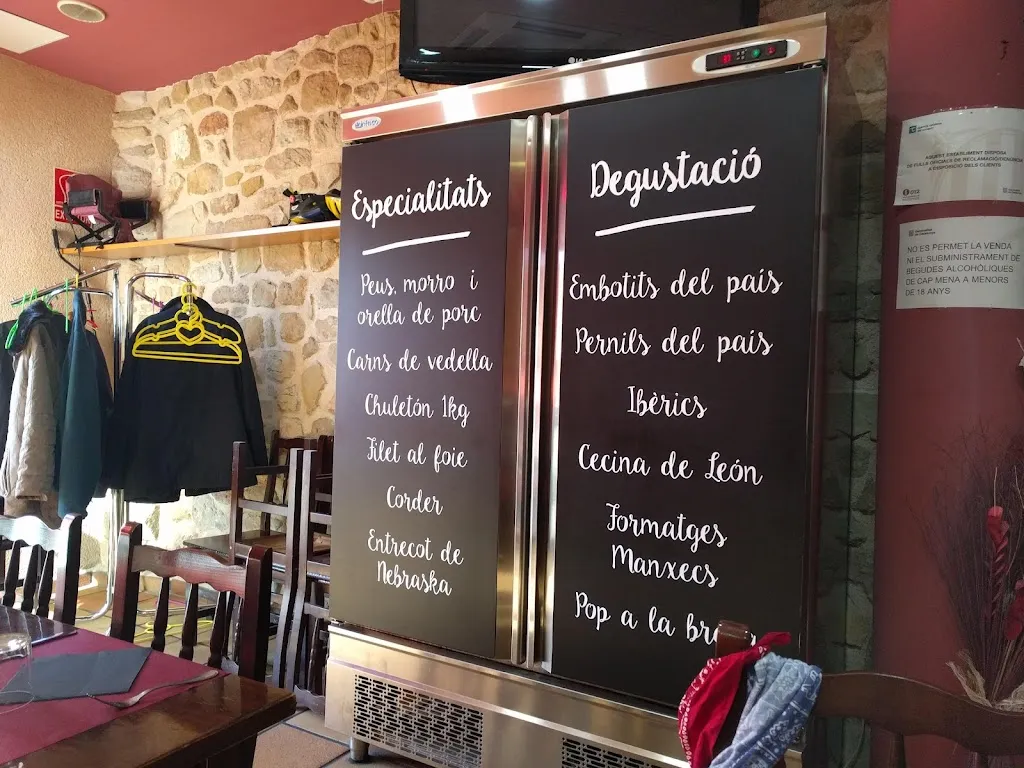 LG
Especialitats
Peus, morro i
orella de porc
Carns de vedella
Chuletón 1kg
Filet al foie
Corder
Entrecot de
Nebraska
Degustació
Embotits del país
Pernils del país
Ibèrics
Cecina de León
Formatges
Manxecs
Pop a la
AQUEST ESTABLIMENT DISPOSA
DE FULLS OFICIALS DE RECLAMACIÓ/DENÚNCIA
A DISPOSICIÓ DELS CLIENTS
NO ES PERMET LA VENDA
NI EL SUBMINISTRAMENT DE
BEGUDES ALCOHÒLIQUES
DE CAP MENA A MENORS
DE 18 ANYS